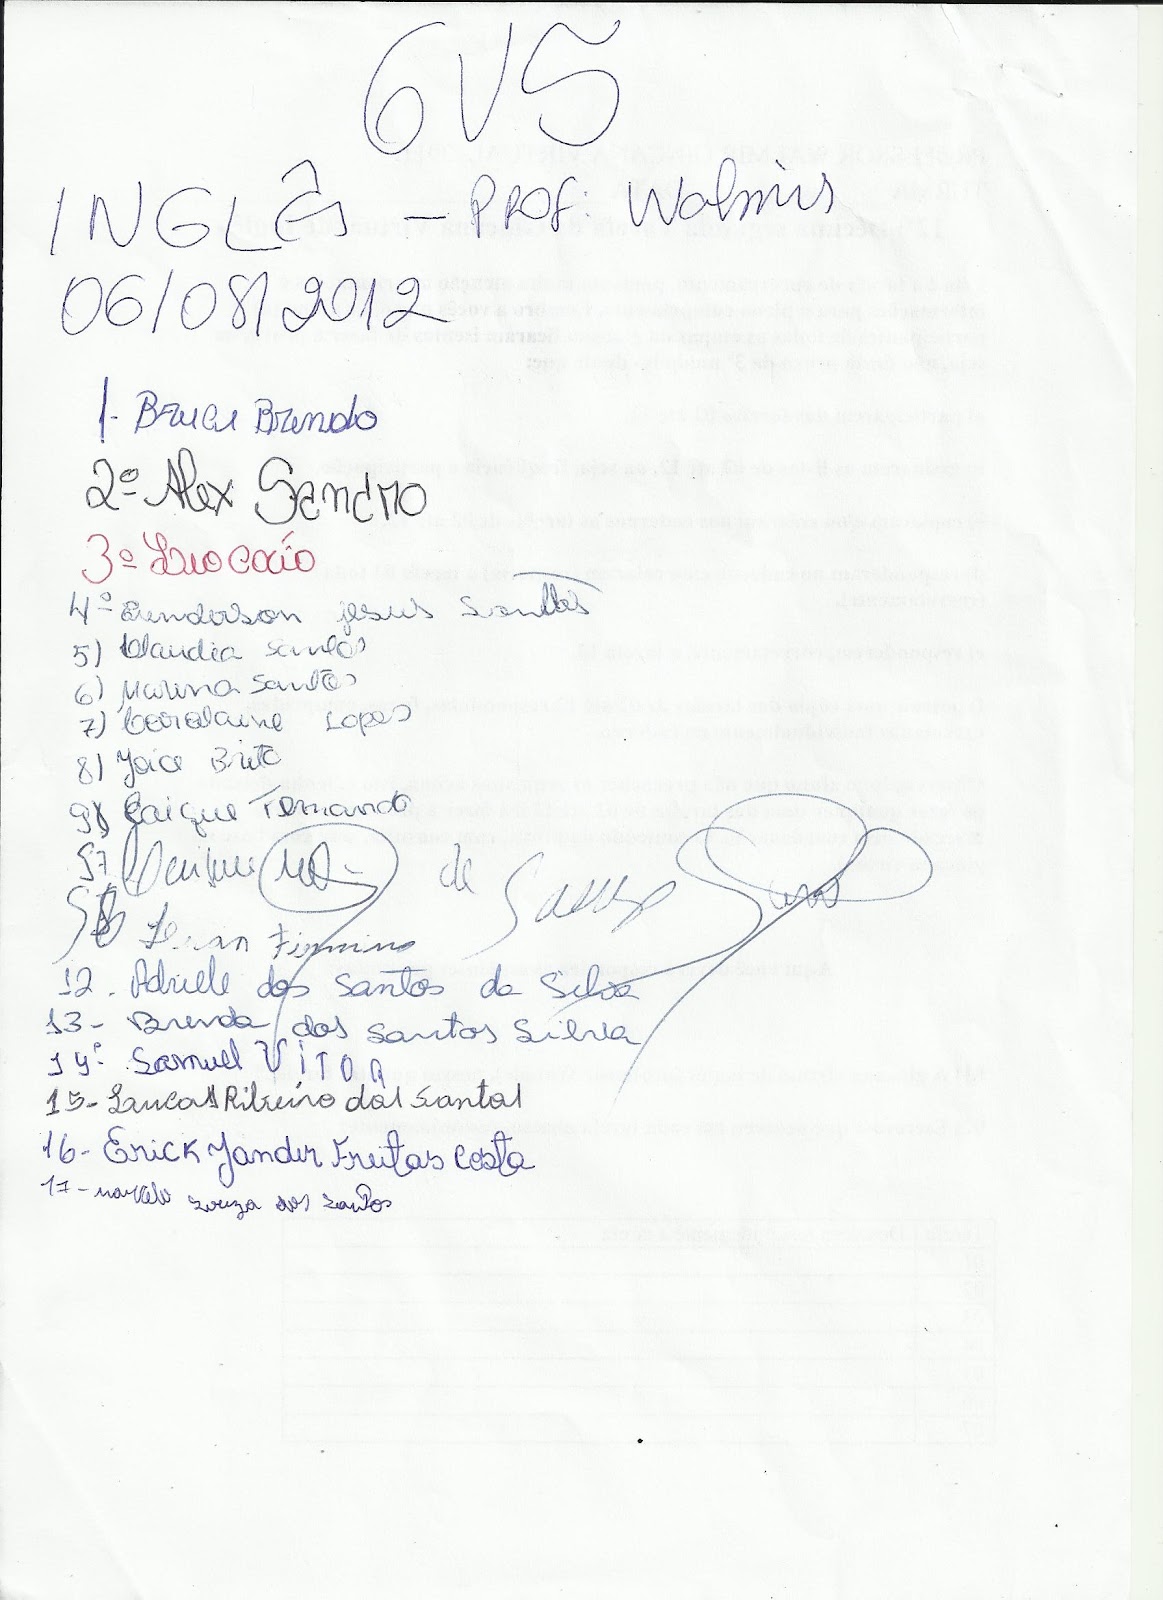 6V5
INGLÊS - PROF: Walmir
06/08/2012
1- Bruce Brendo
2º Alex Sandro
3º Caío
4º jesus Santos
5) Klaudia Santos
6) Marina Santos
7) Carolaine Lopes
8) Joice Brito
9) Caique Fernando
de Souza
Firmino
12. Adriele dos Santos da Silva
13- Brenda dos Santos Silva
14º Samuel VITOR
15- Lucas Ribeiro dos Santos
16- Erick Jander Freitas Costa
17- Marcelo souza dos Santos